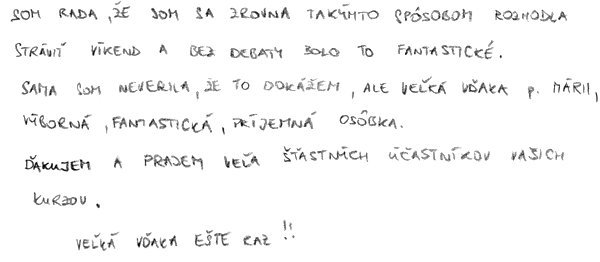 SOM RADA, ŽE SOM SA ZROVNA TAKÝMTO SPÔSOBOM ROZHODLA
STRÁVIŤ VÍKEND A BEZ DEBATY BOLO TO FANTASTICKÉ.
SAMA SOM NEVERILA, ŽE TO DOKÁŽEM, ALE VEĽKÁ VĎAKA p. MÁRII,
VÝBORNÁ, FANTASTICKÁ, PRÍJEMNÁ OSÔBKA.
ĎAKUJEM A PRAJEM VEĽA ŠŤASTNÍCH ÚČASTNÍKOV VAŠICH
KURZOV.
VEĽKÁ VĎAKA EŠTE RAZ !!